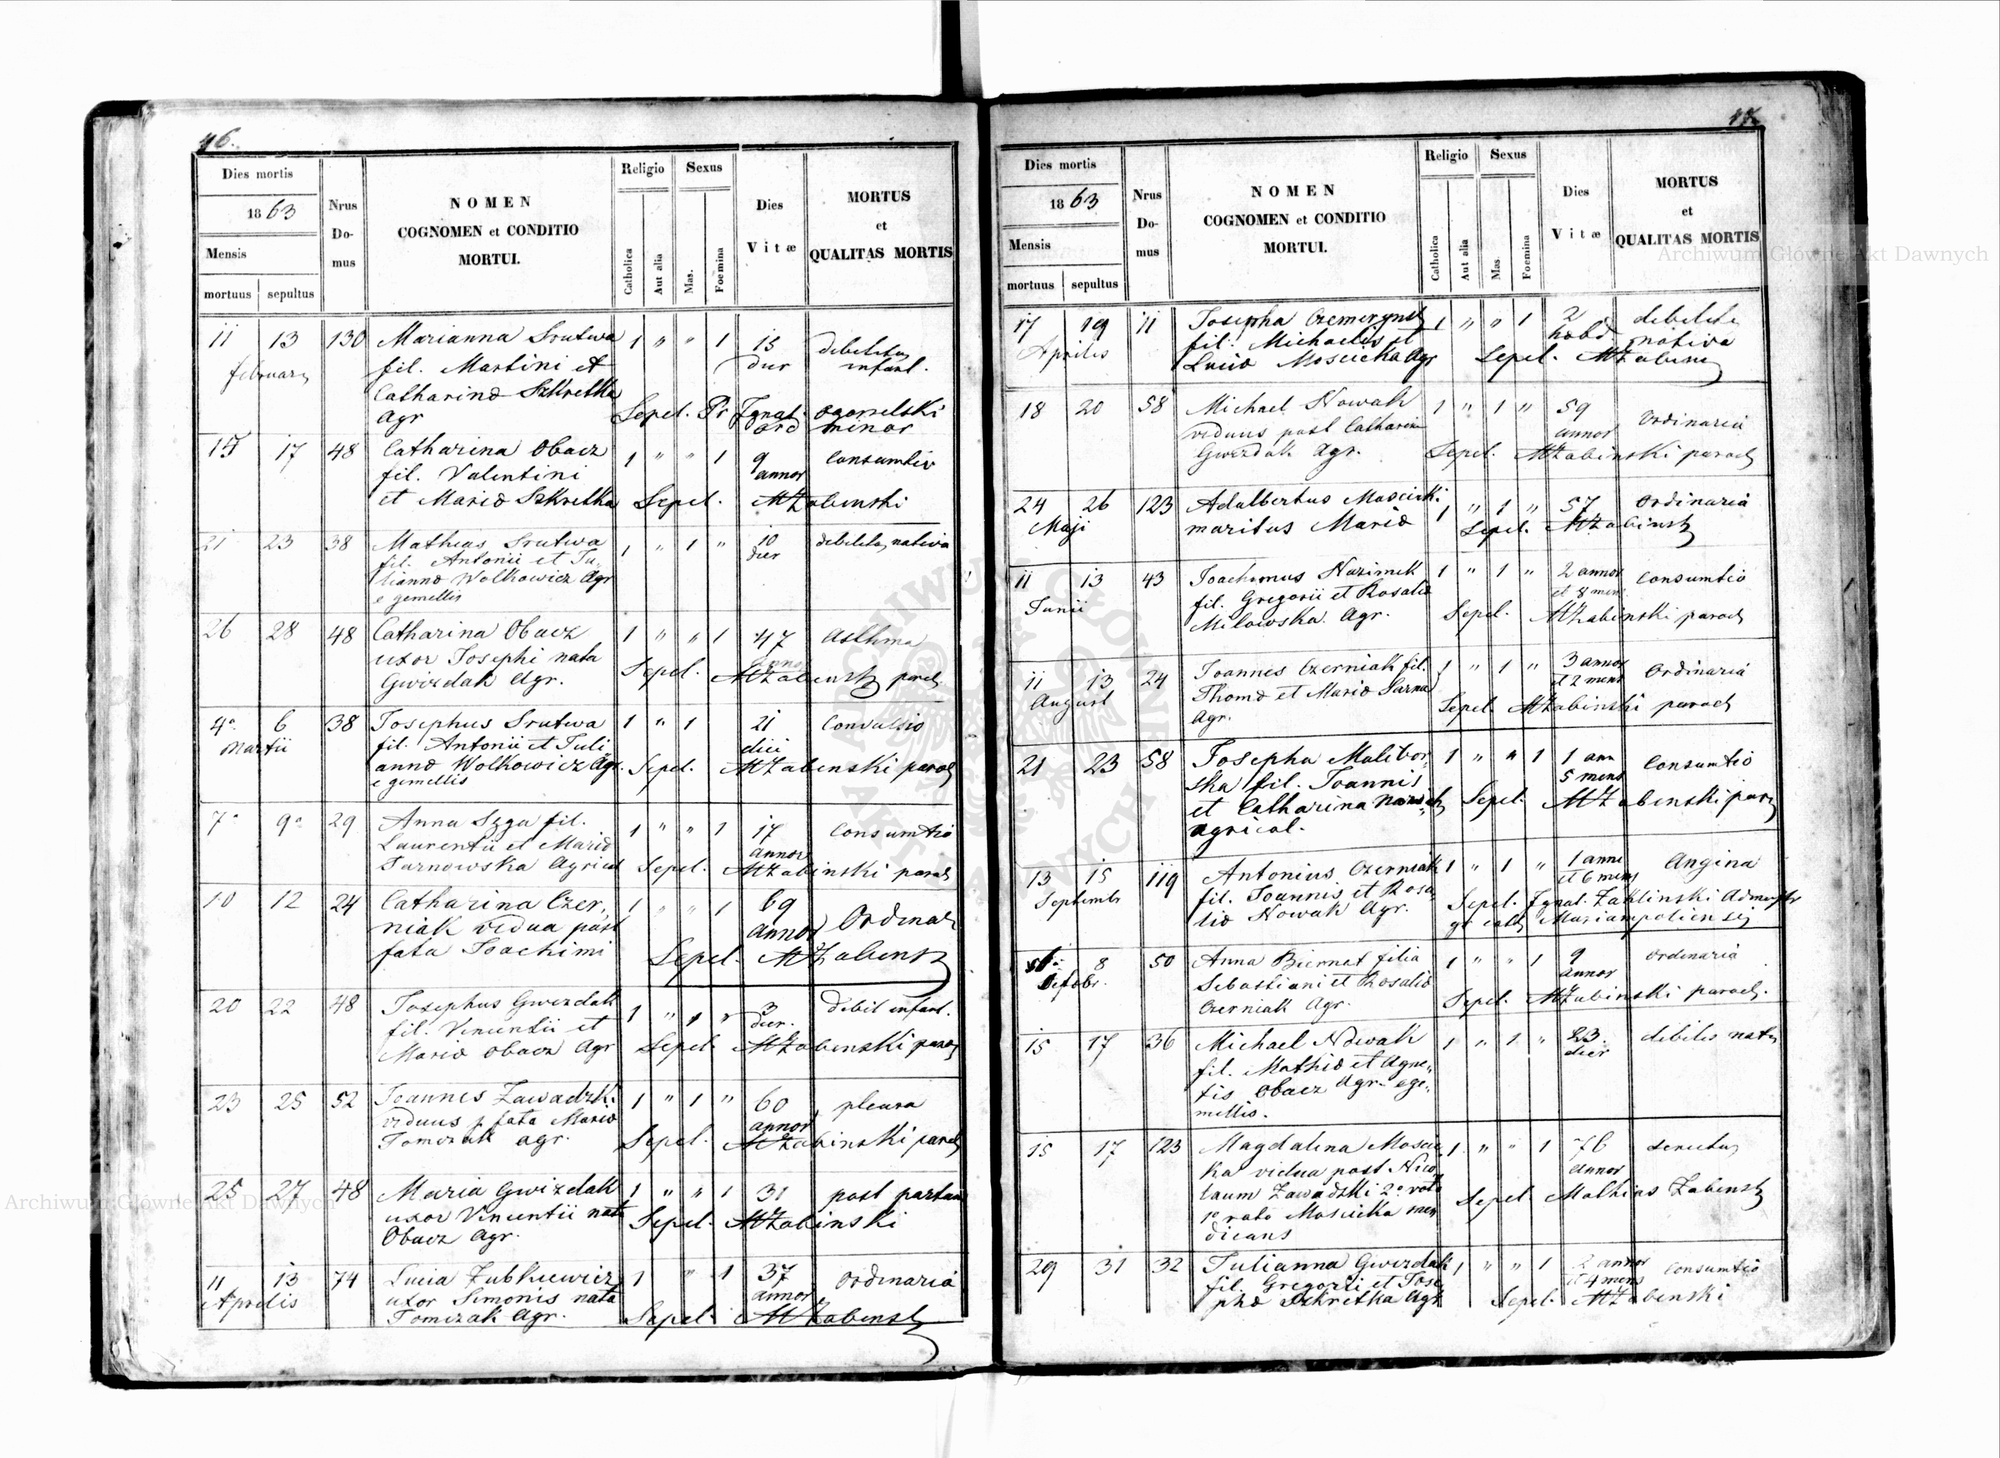 46.
Dies mortis
1863
Mensis
mortuus sepultus
Nrus Do-mus
NOMEN
COGNOMEN et CONDITIO
MORTUI.
Religio
Catholica
Aut alia
Sexus
Mas.
Foemina
Dies
Vitæ
MORTUS
et
QUALITAS MORTIS
11 13 130 Marianna Srutwa 1 " " 1 15 debilitas
februarii fil. Martini et dier infant.
Catharina Szkretka
Agr Sepel. Pr Ignat. Ogorzelski
ord minor
15 17 48 Catharina Obacz 1 " " 1 9 Consumtio
fil. Valentini annor
et Maria Szkretka Sepel. MZabinski
21 23 38 Mathias Srutwa 1 " 1 " 10 debilitas nativa
fil. Antonii et Ju- dier
lianna Wolkowicz Agr
e gemellis
26 28 48 Catharina Obacz 1 " " 1 47 Asthma
uxor Josephi nata annor
Gwizdak Agr. Sepel. MZabinski paroch
4a 6 38 Josephus Srutwa 1 " 1 21 Convulsio
Martii fil. Antonii et Juli diei
anna Wolkowicz Agr. Sepel. MZabinski paroch
e gemellis
7a 9a 29 Anna Szga fil. 1 " " 1 17 Consumtio
Laurentii et Maria annor
Tarnowska Agricol Sepel. MZabinski paroch
10 12 24 Catharina Czer- 1 " " 1 69 Ordinar
niak vidua post annor
fata Joachimi Sepel. MZabinski
20 22 48 Josephus Gwizdak 1 " 1 " 3 debil infant.
fil. Vincentii et dier.
Maria Obacz Agr Sepel. MZabinski paroch
23 25 52 Joannes Zawadzki 1 " 1 " 60 pleura
viduus p fata Maria annor
Tomczak agr. Sepel. MZabinski paroch
25 27 48 Maria Gwizdak 1 " " 1 31 post partum
uxor Vincentii nata Sepel. MZabinski
Obacz Agr.
11 13 74 Lucia Zubkiewicz 1 " 1 37 Ordinaria
Aprilis uxor Simonis nata annor
Tomczak Agr. Sepel. MZabinski
47.
Dies mortis
1863
Mensis
mortuus sepultus
Nrus Do-mus
NOMEN
COGNOMEN et CONDITIO
MORTUI.
Religio
Catholica
Aut alia
Sexus
Mas.
Foemina
Dies
Vitæ
MORTUS
et
QUALITAS MORTIS
17 19 11 Josepha 1 " " 1 2 debilitas
Aprilis fil. Michaelis et hebd nativa
Lucia Moscicka Agr Sepel. MZabinski
18 20 58 Michael Nowak 1 " 1 " 59 Ordinaria
viduus post Catharina annor
Gwizdak Agr. Sepel. MZabinski paroch
24 26 123 Adalbertus Moscicki 1 " 1 " 57 Ordinaria
Maji maritus Maria Sepel. MZabinski
11 13 43 Joachimus Nazimek 1 " 1 " 2 annor Consumtio
Junii fil. Gregorii et Rosalia et 8 men.
Milowska Agr. Sepel. MZabinski paroch
11 13 24 Joannes Czerniak fil. 1 " 1 " 3 annor Ordinaria
August Thoma et Maria Sarna et 2 mens
Agr. Sepel. MZabinski paroch
21 23 58 Josepha Malibor- 1 " " 1 1 ann Consumtio
ska fil. Joannis 5 mens
et Catharina Nowak Sepel. MZabinski paroch
agricol.
13 15 119 Antonius Czerniak 1 " 1 " 1 anni Angina
Septembr fil. Joannis et Rosa- et 6 mens
lia Nowak Agr. Sepel. Ignat. Zaklinski Administr
gr cath Mariampoliensis
6a 8 50 Anna Biernat filia 1 " " 1 9 Ordinaria
Octobr. Sebastiani et Rosalia annor
Czerniak Agr. Sepel. MZabinski paroch.
15 17 36 Michael Nowak 1 " 1 " 23. debilis nativ
fil. Mathia et Agne- dier
tis Obacz Agr. e ge-
mellis.
15 17 123 Magdalena Moscic- 1 " " 1 76 senectus
ka vidua post Nico- annor
laum Zawadzki 2o voto Sepel. Mathias Zabinski
1o voto Moscicka men
dicans
29 31 32 Julianna Gwizdak 1 " " 1 2 annor Consumtio
fil. Gregorii et Jose et 4 mens
pha Szkretka Agr Sepel. MZabinski
Archiwum Główne Akt Dawnych
Archiwum Główne Akt Dawnych
ARCHIWUM GŁÓWNE AKT DAWNYCH